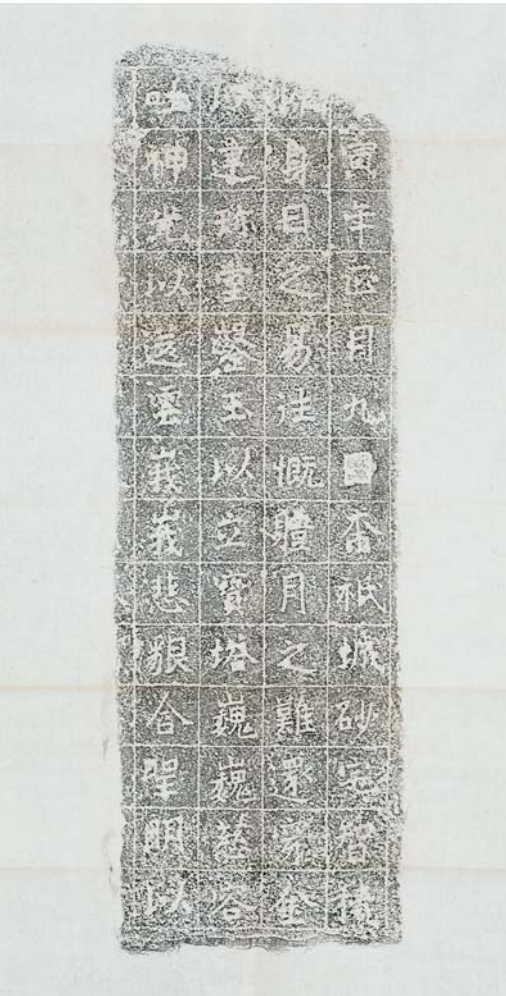 寅年正月九日奈祇城砂宅智積
身日之易往慨軆月之難還穿金
以建珎堂鑿玉以立寶塔巍巍慈容
吐神光以送雲峩峩悲貌含聖明以